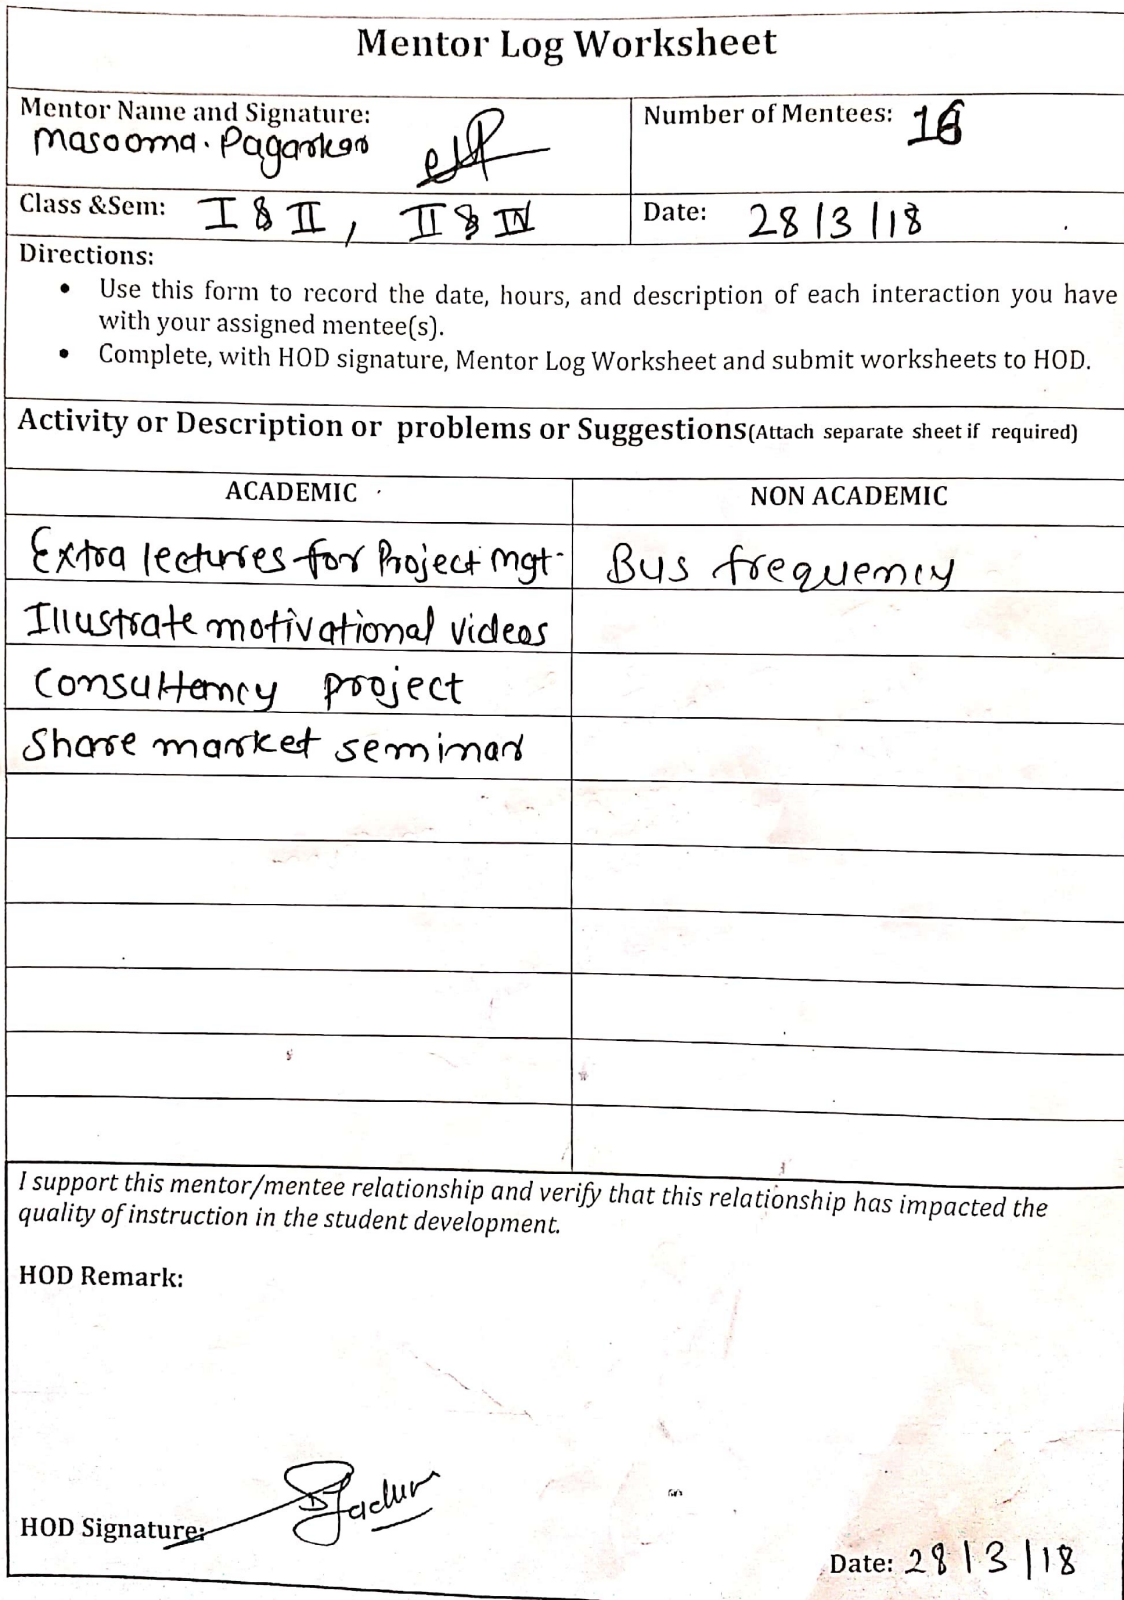 Mentor Log Worksheet
Mentor Name and Signature:
Masooma. Pagarkar
Number of Mentees: 16
Class &Sem: I & II, II & IV
Date: 28/3/18
Directions:
• Use this form to record the date, hours, and description of each interaction you have
with your assigned mentee(s).
• Complete, with HOD signature, Mentor Log Worksheet and submit worksheets to HOD.
Activity or Description or problems or Suggestions(Attach separate sheet if required)
ACADEMIC
NON ACADEMIC
Extra lectures for Project mgt.
Bus frequency
Illustrate motivational videos
Consultancy project
Share market seminar
I support this mentor/mentee relationship and verify that this relationship has impacted the
quality of instruction in the student development.
HOD Remark:
HOD Signature:
Date: 28/3/18